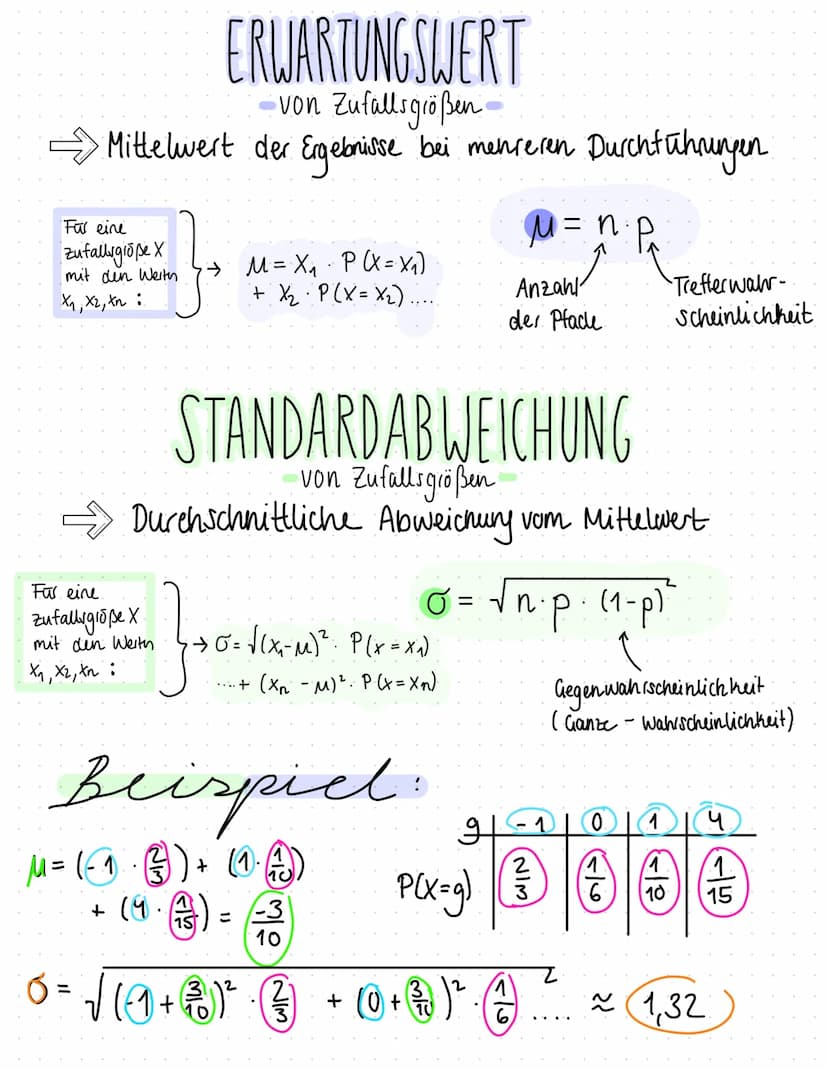 ERWARTUNGSWERT
-von Zufallsgrößen-
⇒ Mittelwert der Ergebnisse bei mehreren Durchführungen
Für eine
Zufallsgröße X
mit den Werten
x₁, x₂, xn :
→ μ = x₁ · P(X = x₁)
+ x₂ · P(X = x₂) ....
μ = n · p
Anzahl
der Pfade
Trefferwahr-
scheinlichkeit
STANDARDABWEICHUNG
-von Zufallsgrößen-
⇒ Durchschnittliche Abweichung vom Mittelwert
Für eine
Zufallsgröße X
mit den Werten
x₁, x₂, xn :
→ σ = √(x₁-μ)² · P(x = x₁)
....+ (xn - μ)² · P(x = xn)
σ = √n · p · (1-p)²
Gegenwahrscheinlichkeit
(Ganze - Wahrscheinlichkeit)
Beispiel:
μ = (-1 · 2/3) + (1 · 1/10)
+ (4 · 1/15) = -3/10
g | -1 | 0 | 1 | 4
P(X=g) | 2/3 | 1/6 | 1/10 | 1/15
σ = √(-1 + 3/10)² · 2/3 + (0 + 3/10)² · 1/6 ....² ≈ 1,32